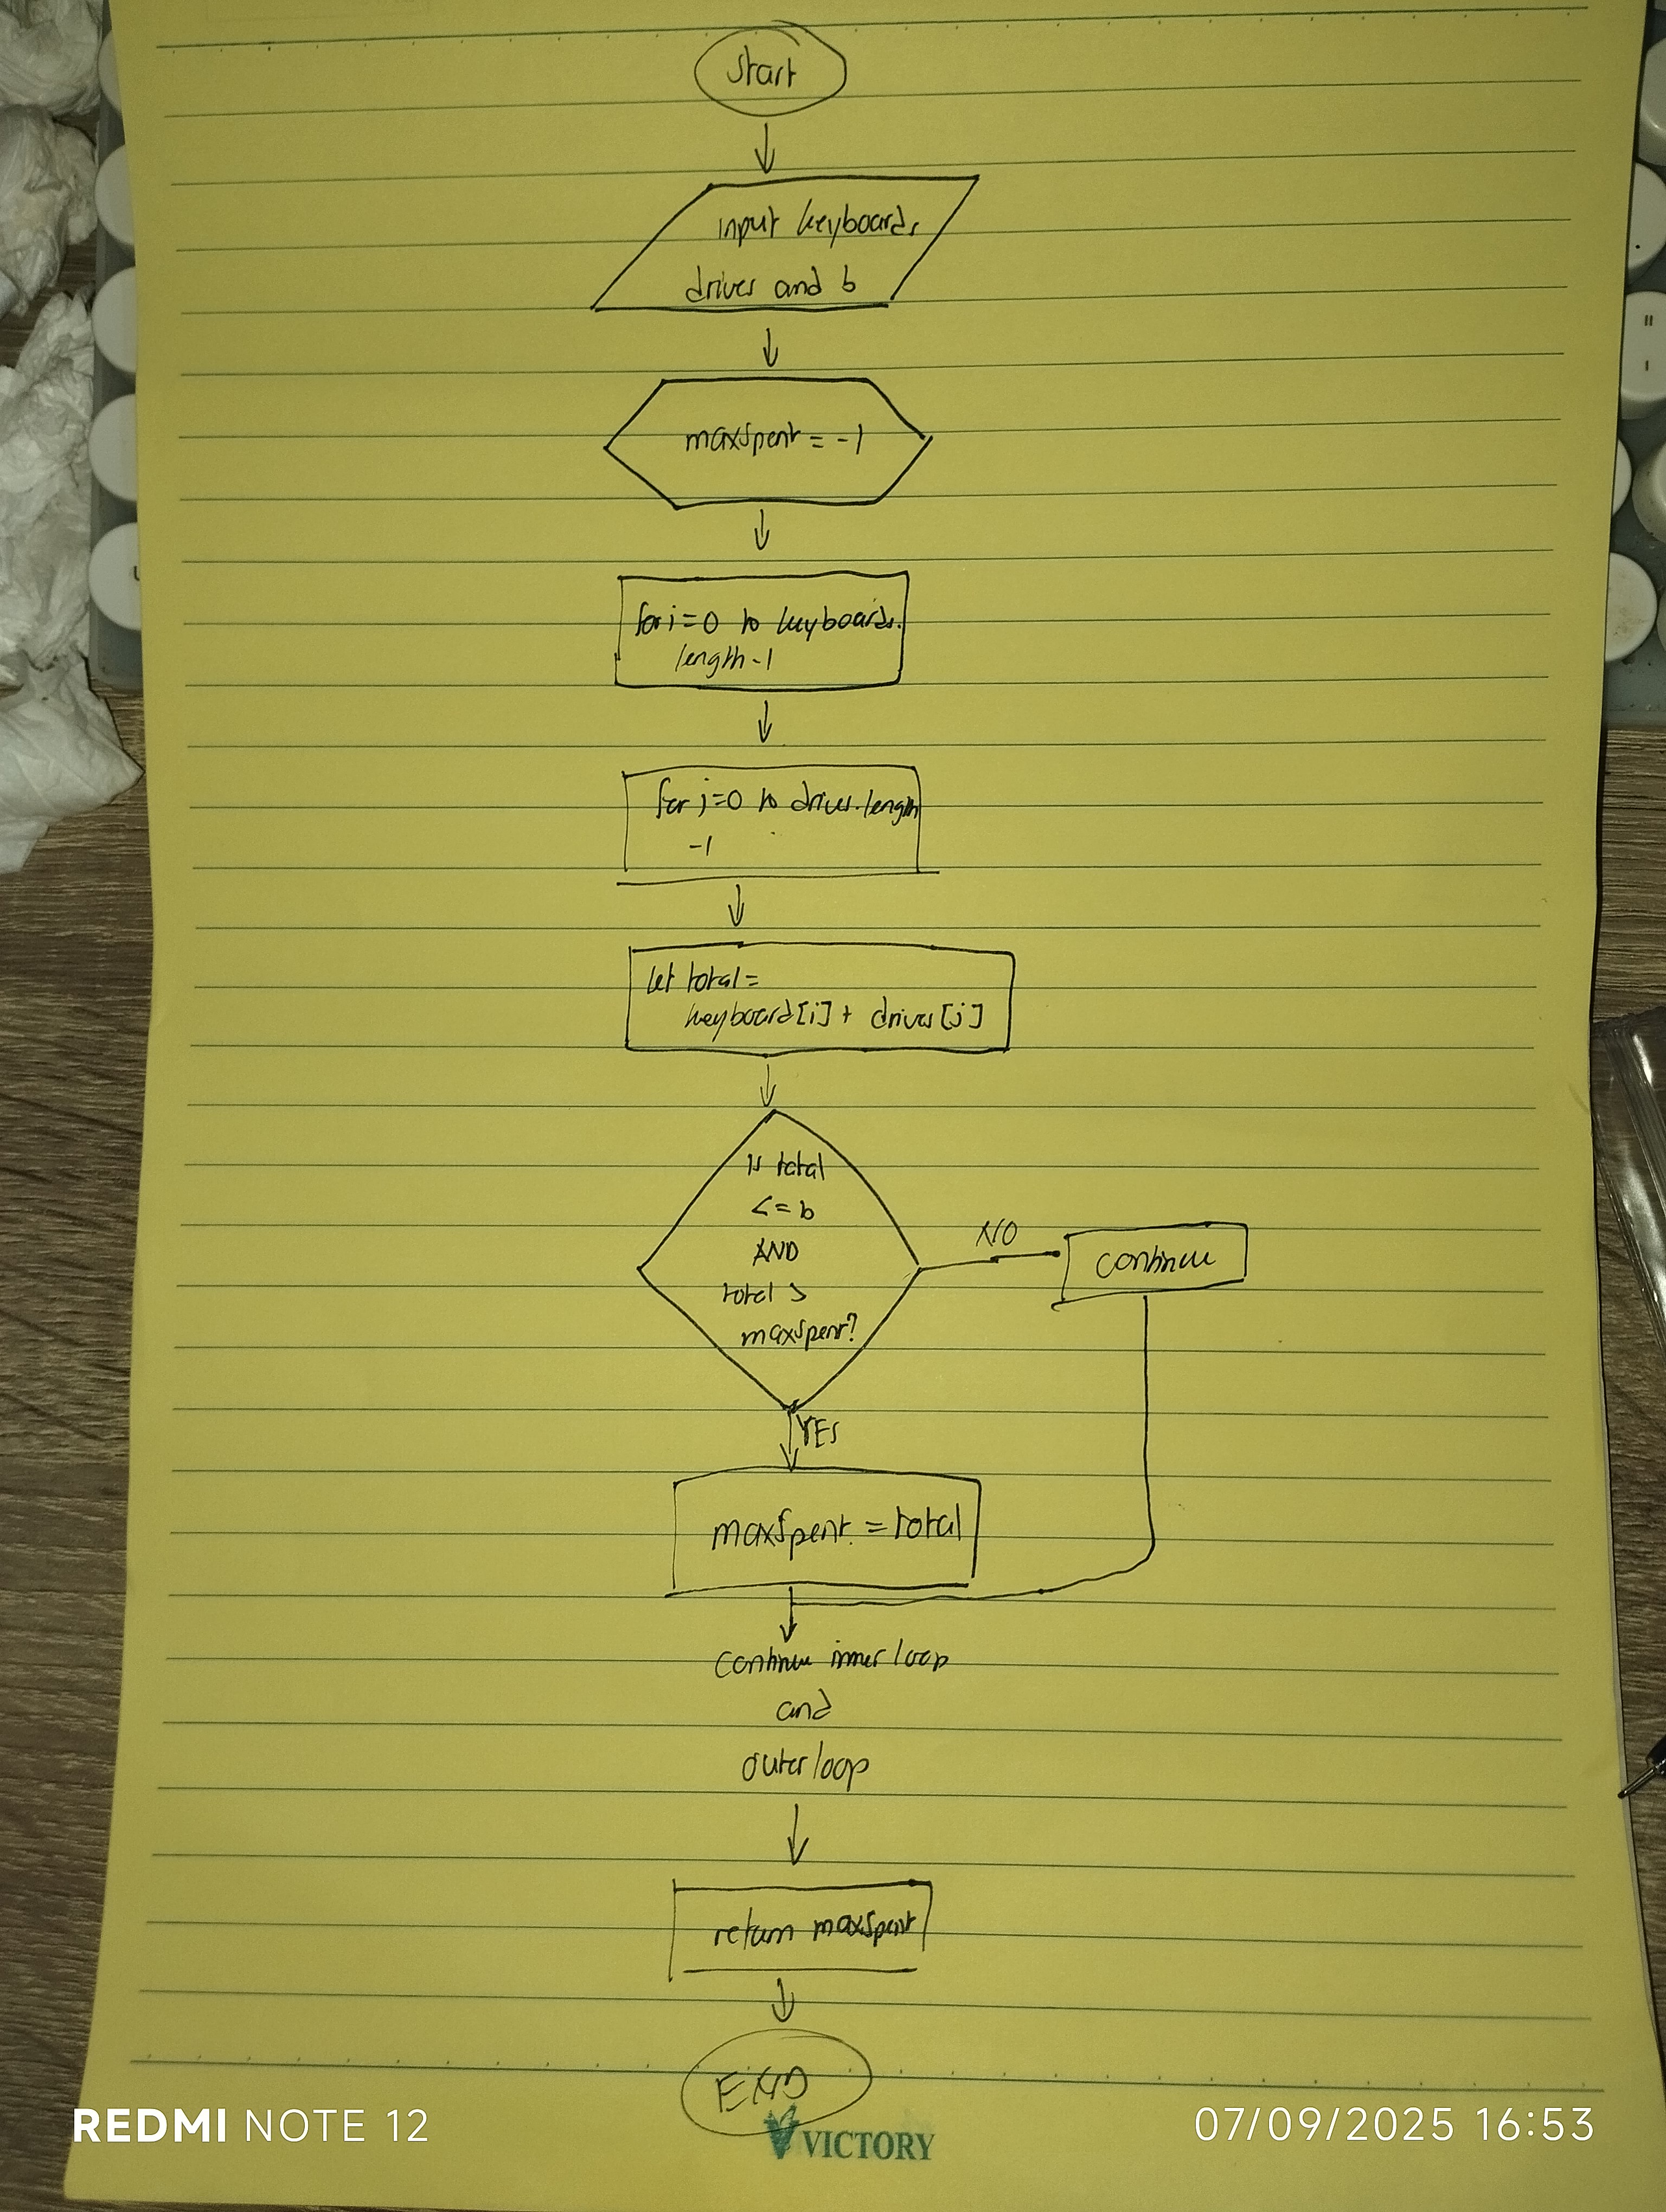 Start
input keyboards,
drives and b
maxSpent = -1
for i=0 to keyboards.
length-1
for j=0 to drives.length
-1
let total =
keyboard[i] + drives[j]
Is total
<= b
AND
total >
maxSpent?
NO
continue
YES
maxSpent = total
continue inner loop
and
outer loop
return maxSpent
END
REDMI NOTE 12
07/09/2025 16:53
VICTORY